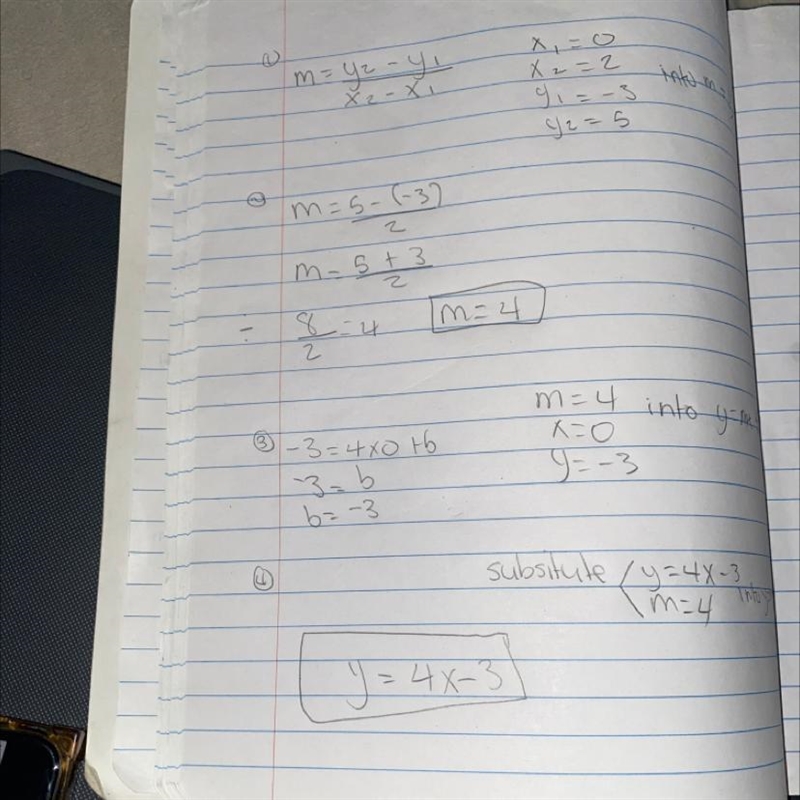 ① m = y₂ - y₁ / x₂ - x₁
x₁ = 0
x₂ = 2
y₁ = -3
y₂ = 5
into m =
② m = 5 - (-3) / 2
m = 5 + 3 / 2
÷ 8 / 2 = 4
m = 4
③ -3 = 4x0 + b
-3 = b
b = -3
m = 4 into y=
x = 0
y = -3
④ subsitute y = 4x - 3
m = 4 into
y = 4x - 3